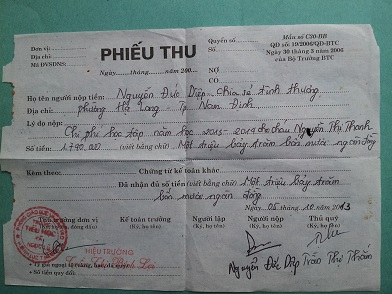 Đơn vị:
Địa chỉ:
Mã ĐVNDNS:
PHIẾU THU
Ngày.......tháng.......năm 200...
Quyển số:
Số:
Mẫu số C30-BB
QĐ số: 19/2006/QĐ-BTC
Ngày 30 tháng 3 năm 2006
của Bộ Trưởng BTC
NỢ
CÓ
Họ tên người nộp tiền: Nguyễn Đức Diệp. Chia sẻ tình thương
Địa chỉ: phường Hạ Long - Tp Nam Định
Lý do nộp:
Chi phí học tập năm học 2013-2014 cho cháu Nguyễn Thị Thanh
Số tiền: 1.740.000 (viết bằng chữ) Một triệu bảy trăm bốn mươi ngàn đồng
Kèm theo: Chứng từ kế toán khác
Đã nhận đủ số tiền (viết bằng chữ) Một triệu bảy trăm
bốn mươi ngàn đồng
Ngày 05 tháng 10 năm 2013
Thủ trưởng đơn vị
(Ký, họ tên, đóng dấu)
Kế toán trưởng
(Ký, họ tên)
Người lập
(Ký, họ tên)
Người nộp
(Ký, họ tên)
Thủ quỹ
(Ký, họ tên)
HIỆU TRƯỞNG
Nguyễn Đức Diệp
Trần Thị Thắm
+ Tỷ giá ngoại tệ
+ Số tiền quy đổi: